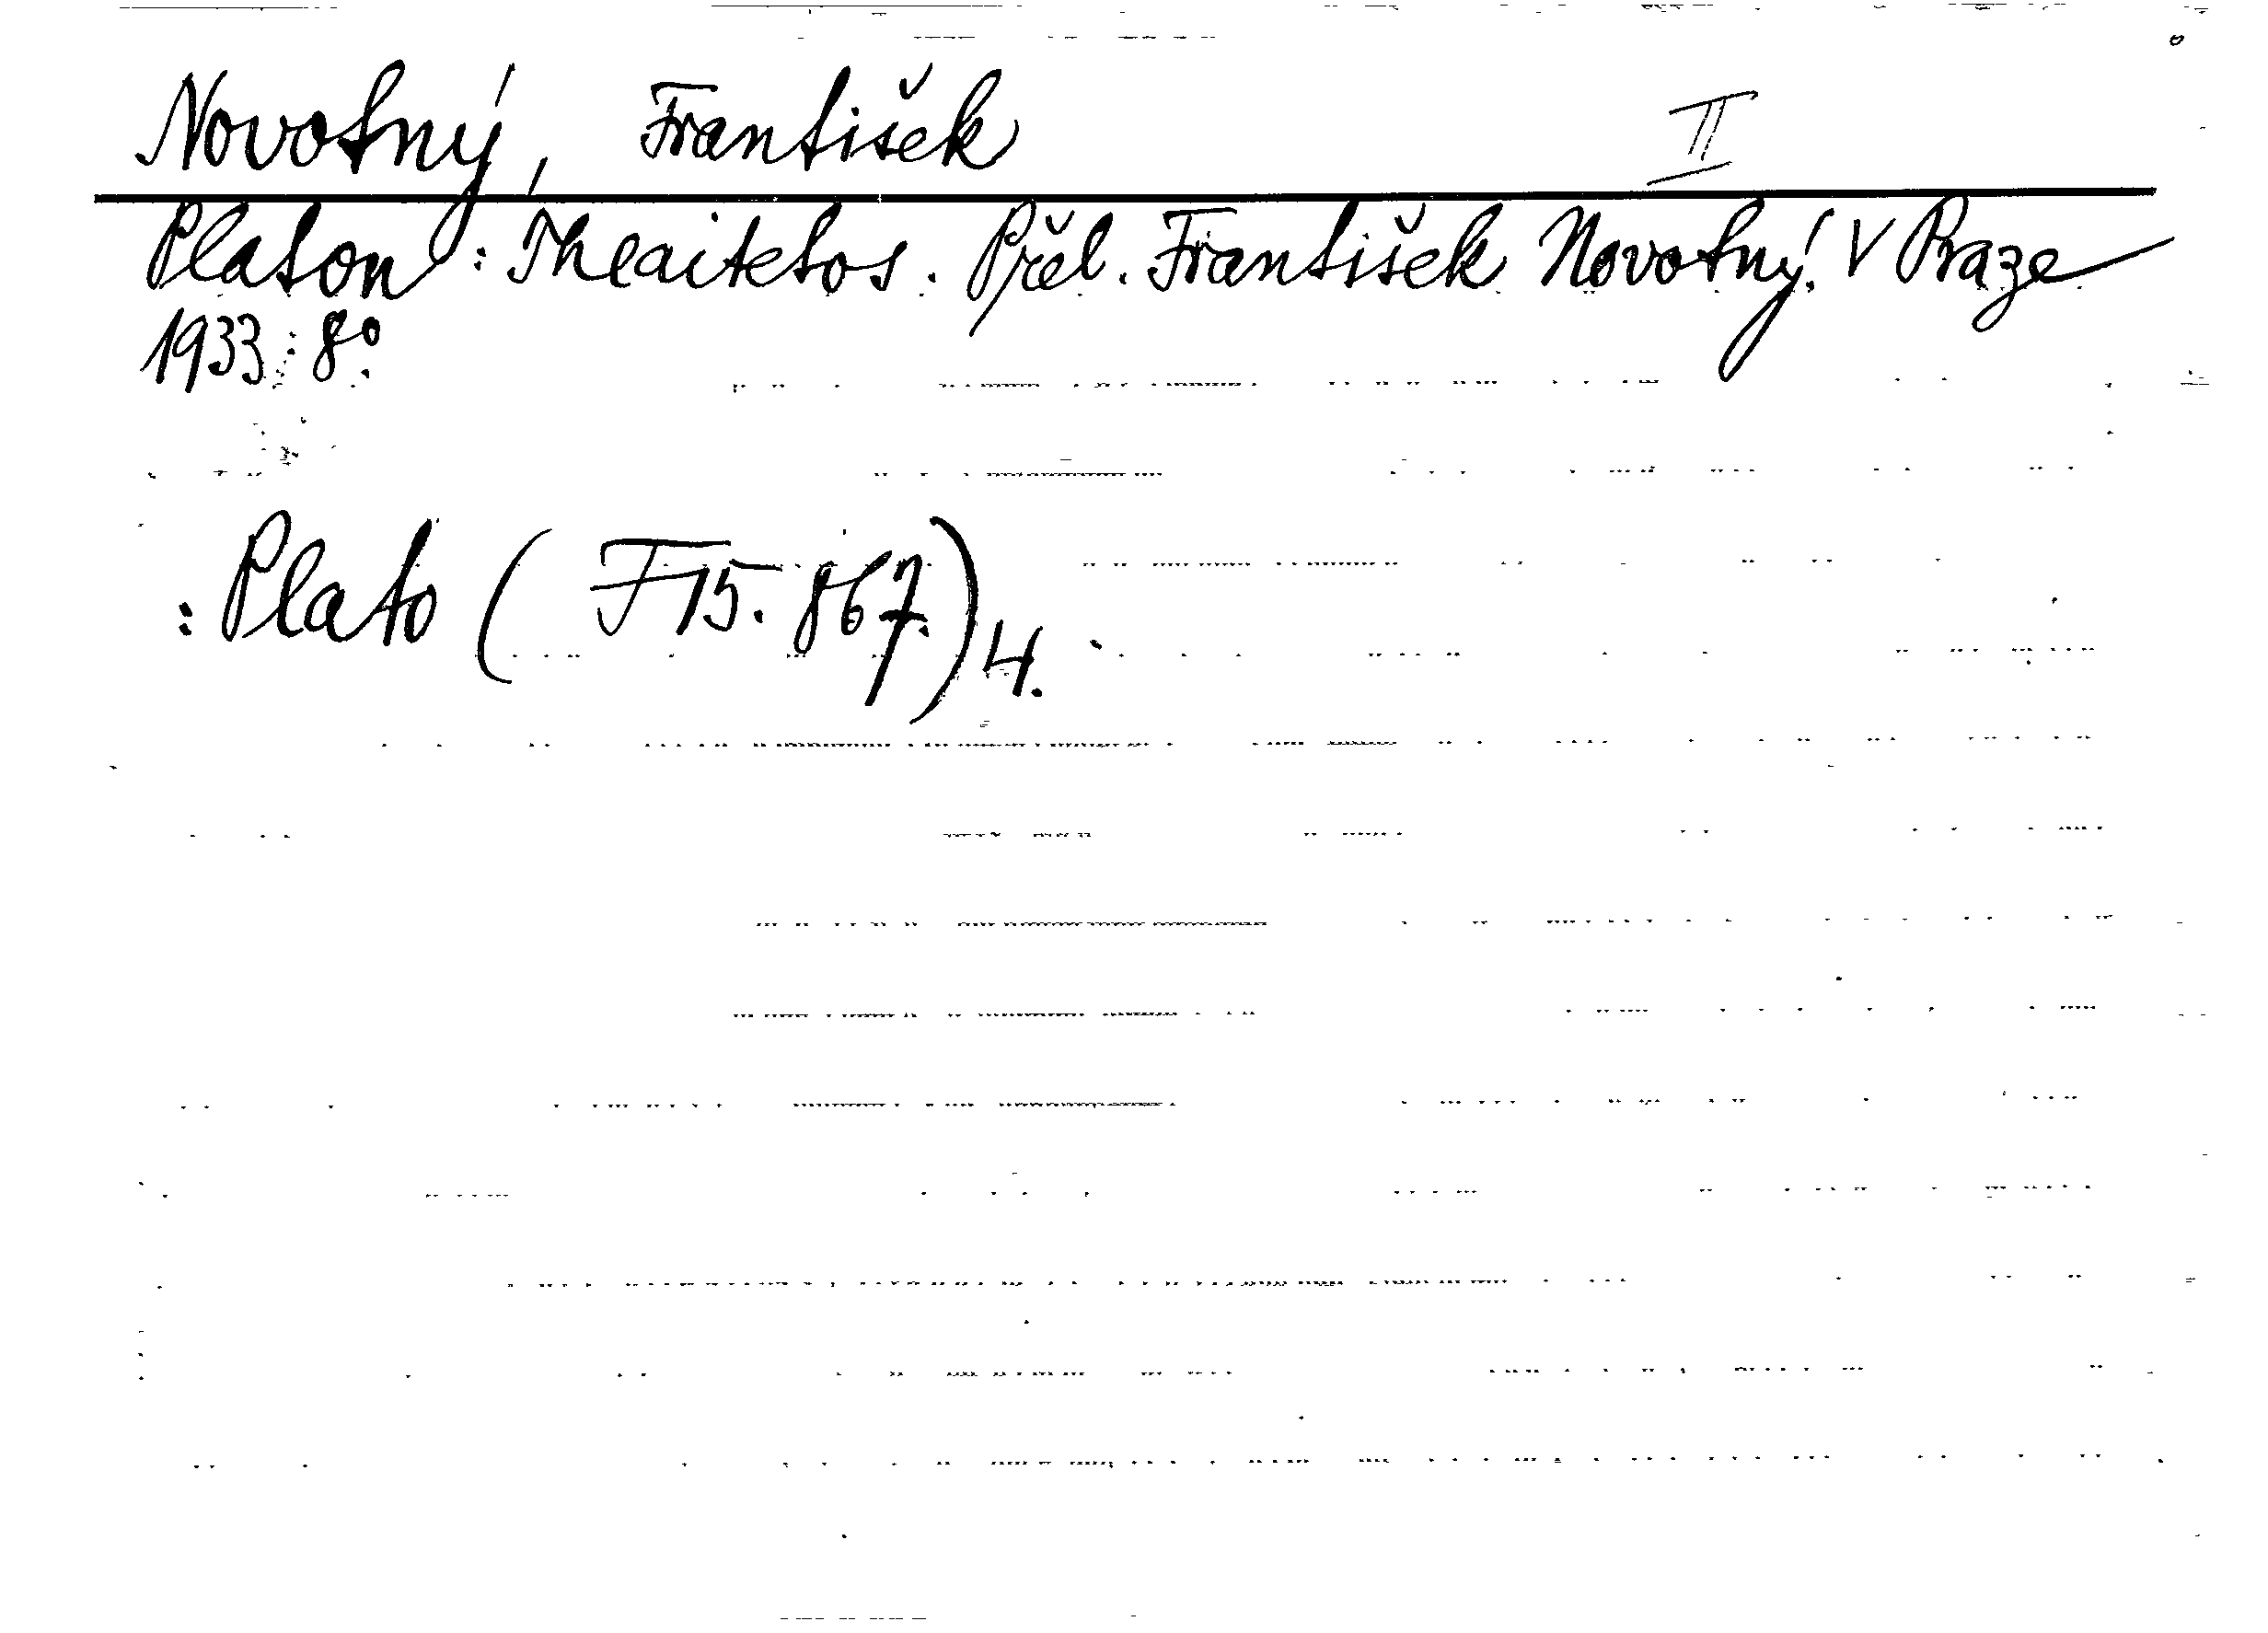 Novotný, František II
Platon: Theaitetos. Přel. František Novotný. V Praze
1933. 8°.
: Plato ( F 15. 867.) 4.